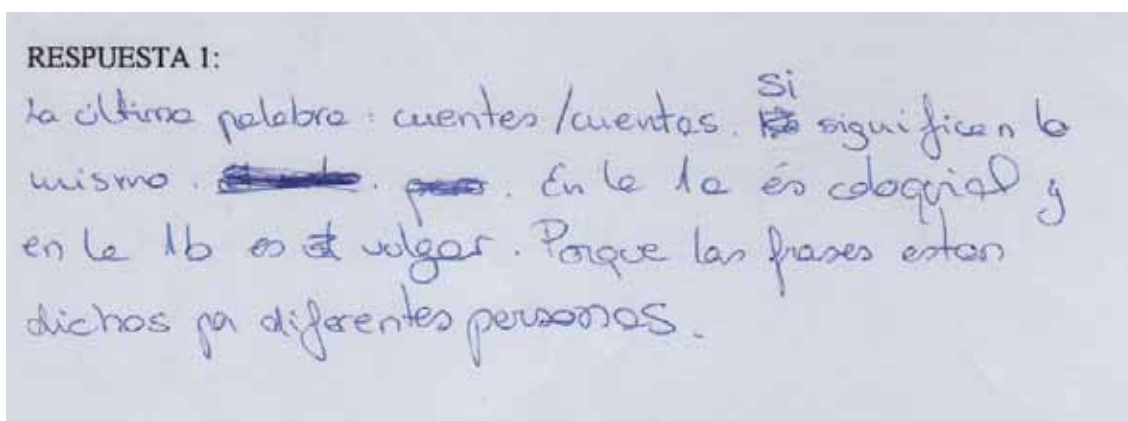 RESPUESTA 1:
La última palabra: cuentes/cuentas. Si significan lo
mismo. . . En la 1a és coloquial y
en la 1b es vulgar. Porque las frases estan
dichos por diferentes personas.